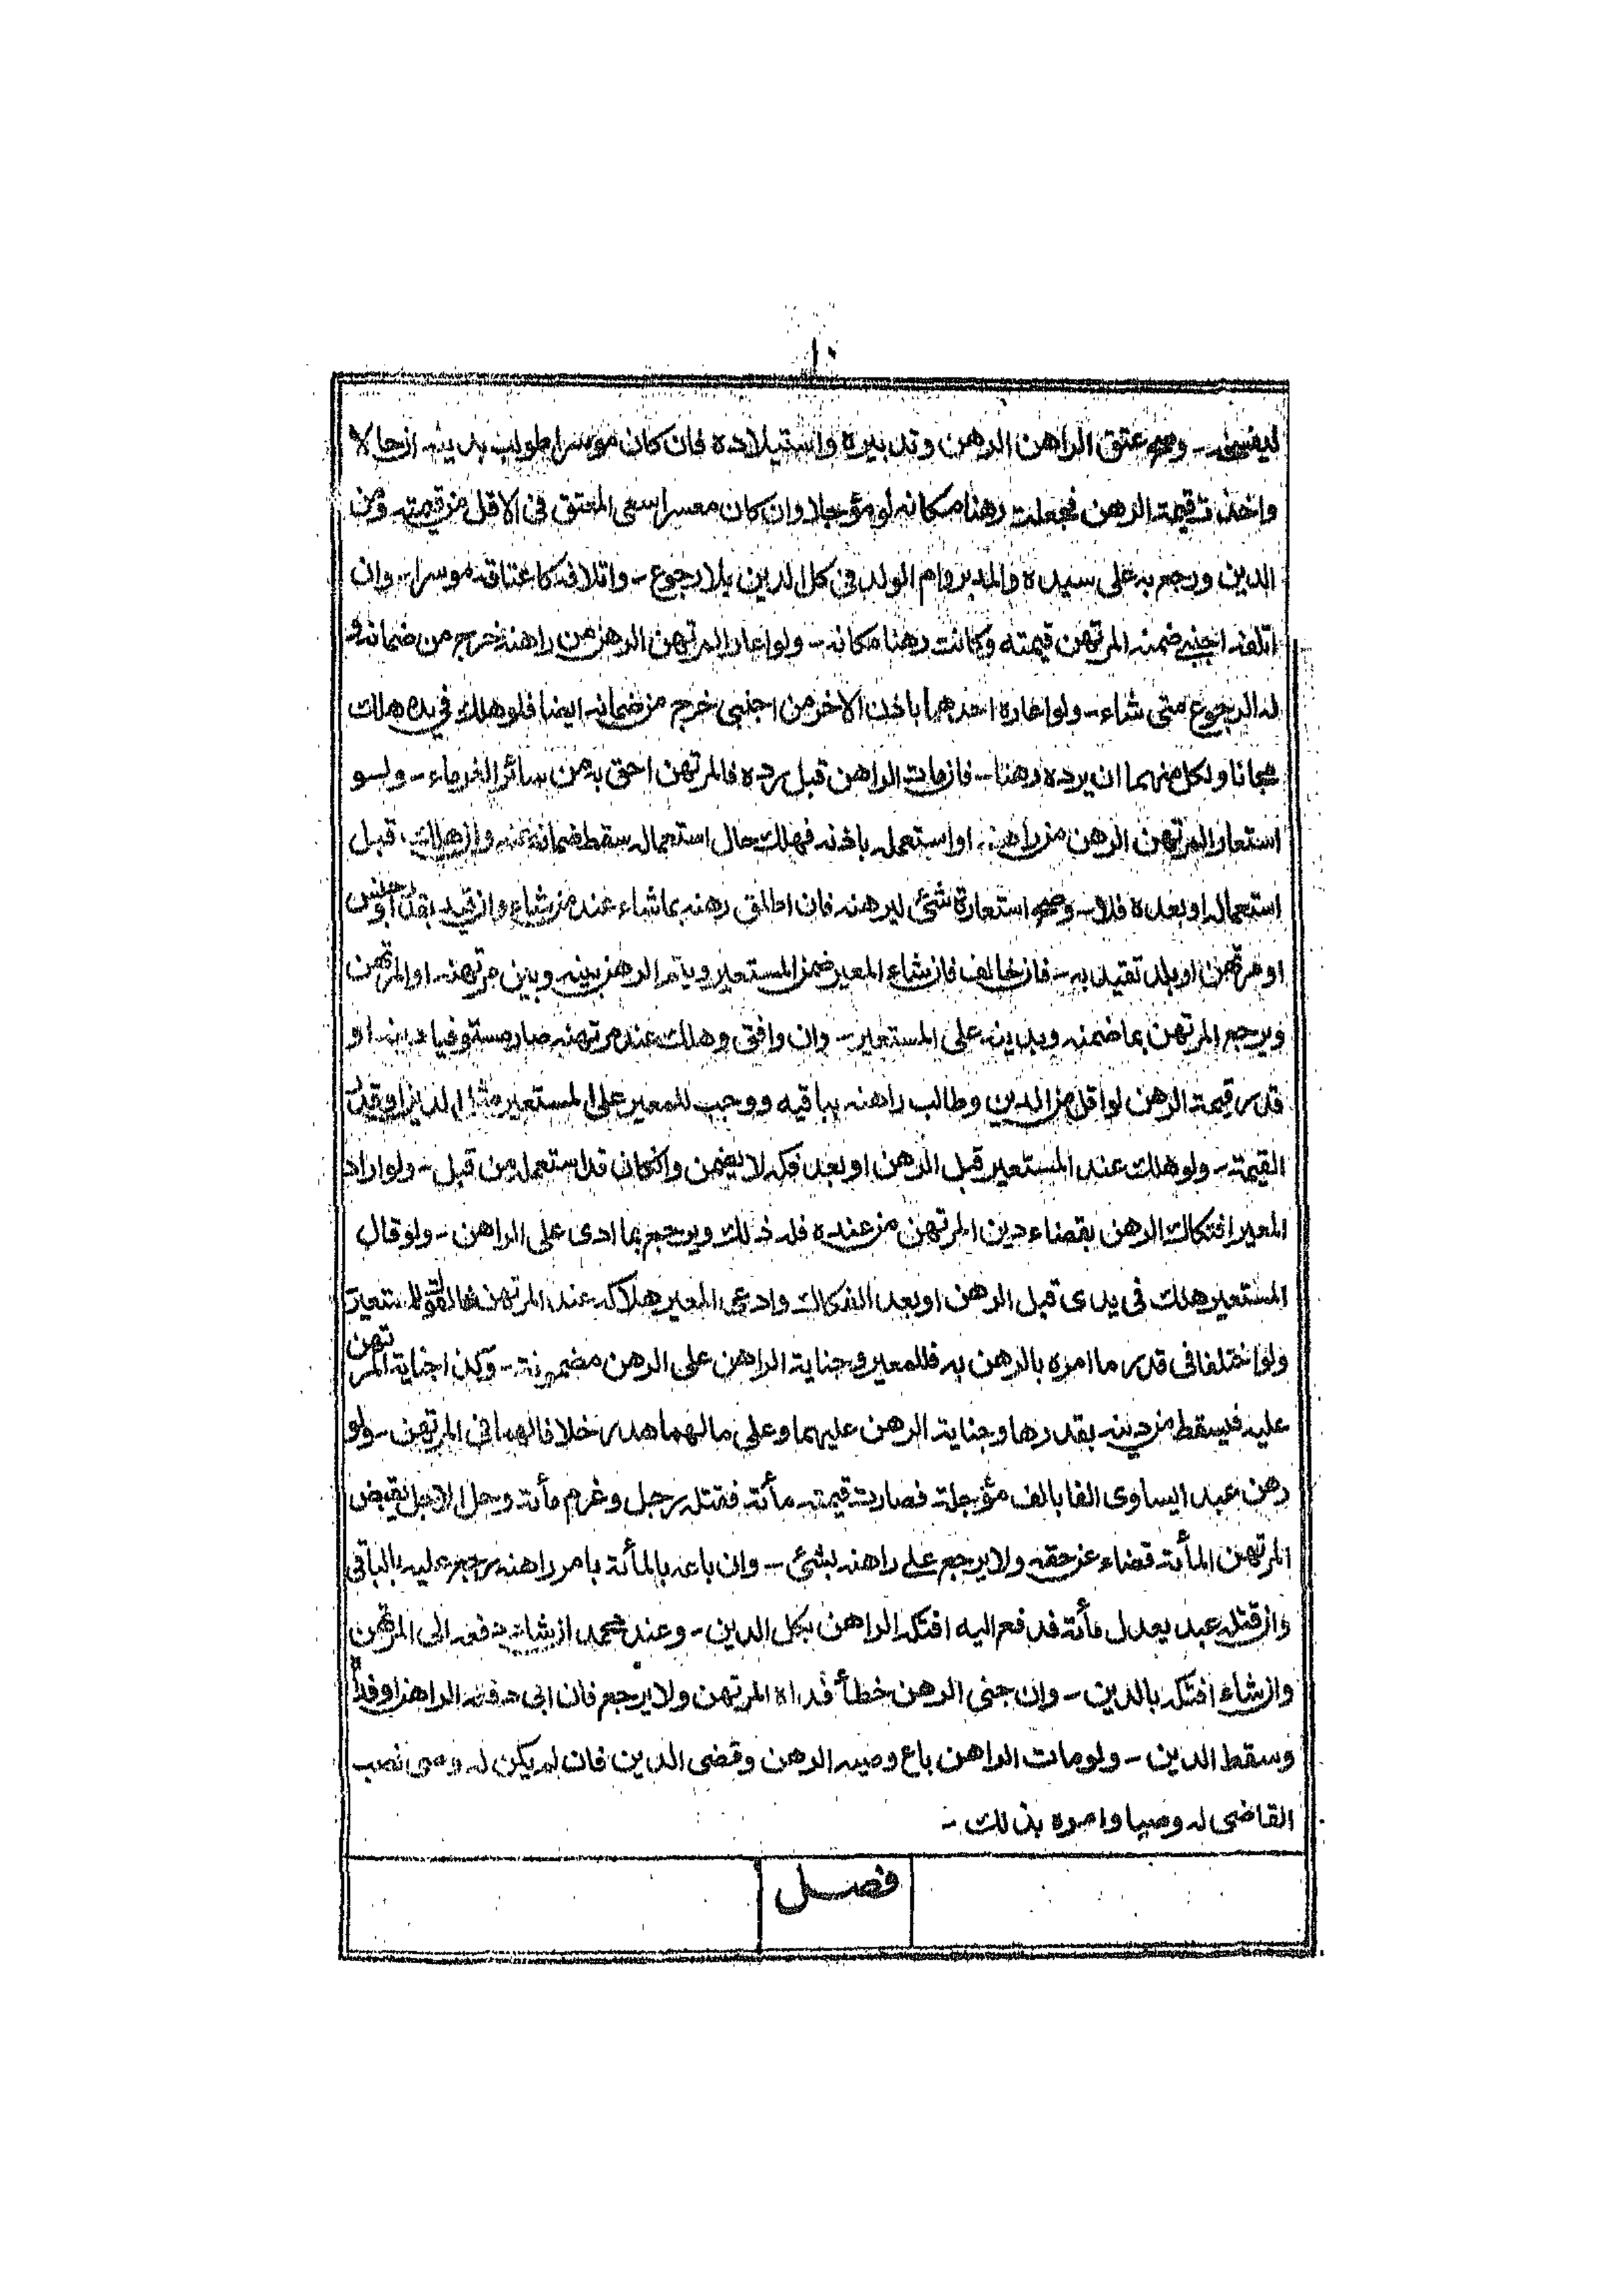 ١٠
ليفسخه ـ وصح عتق الراهن الرهن وتدبيره واستيلاده فان كان موسرا طولب بدينه ان حالا
واخذت قيمة الرهن فجعلت رهنا مكانه لو مؤجلا وان كان معسرا سعى المعتق فى الاقل من قيمته ومن
الدين ورجع به على سيده والمدبر وام الولد فى كل الدين بلا رجوع ـ واتلافه كاعتاقه موسرا ـ وان
اتلفه اجنبي ضمنه المرتهن قيمته وكانت رهنا مكانه ـ ولو اعار المرتهن الرهن من راهنه خرج من ضمانه و
له الرجوع متى شاء ـ ولو اعاره احدهما باذن الاخر من اجنبى خرج من ضمانه ايضا فلو هلك فى يده هلك
مجانا ولكل منهما ان يرده رهنا ـ فان مات الراهن قبل رده فالمرتهن احق به من سائر الغرماء ـ ولو
استعار المرتهن الرهن من راهنه او استعمله باذنه فهلك حال استعماله سقط ضمانه عنه وان هلك قبل
استعماله او بعده فلا ـ وصح استعارة شئ ليرهنه فان اطلق رهنه بما شاء عند من شاء وان قيد بقدر او جنس
او مرتهن او بلد تقيد به ـ فان خالف فان شاء المعير ضمن المستعير ويتم الرهن بينه وبين مرتهنه او المرتهن
ويرجع المرتهن بما ضمنه وبدينه على المستعير ـ وان وافق وهلك عند مرتهنه صار مستوفيا دينه او
قدر قيمة الرهن لو اقل من الدين وطالب راهنه بباقيه ووجب للمعير على المستعير مثل الدين او قدر
القيمة ـ ولو هلك عند المستعير قبل الرهن او بعد فكه لا يضمن وان كان قد استعمله من قبل ـ ولو اراد
المعير افتكاك الرهن بقضاء دين المرتهن من عنده فله ذلك ويرجع بما ادى على الراهن ـ ولو قال
المستعير هلك فى يدى قبل الرهن او بعد الفكاك وادعى المعير هلاكه عند المرتهن فالقول للمستعير
ولو اختلفا فى قدر ما امره بالرهن به فللمعير وجناية الراهن على الرهن مضمونة ـ وكذا جناية المرتهن
عليه فيسقط من دينه بقدرها وجناية الرهن عليهما وعلى مالهما هدر خلافا لهما فى المرتهن ـ ولو
رهن عبدا يساوى الفا بالف مؤجلة فصارت قيمته مأئة فقتله رجل وغرم مأئة وحل الاجل يقبض
المرتهن المأئة قضاء عن حقه ولا يرجع على راهنه بشئ ـ وان باعه بالمأئة بامر راهنه رجع عليه بالباقى
وان قتله عبد يعدل مأئة فدفع اليه افتكه الراهن بكل الدين ـ وعند محمد ان شاء دفعه الى المرتهن
وان شاء افتكه بالدين ـ وان جنى الرهن خطأ فداه المرتهن ولا يرجع فان ابى دفعه الراهن او فداه
وسقط الدين ـ ولو مات الراهن باع وصيه الرهن وقضى الدين فان لم يكن له وصى نصب
القاضى له وصيا وامره بذلك ـ
فصل